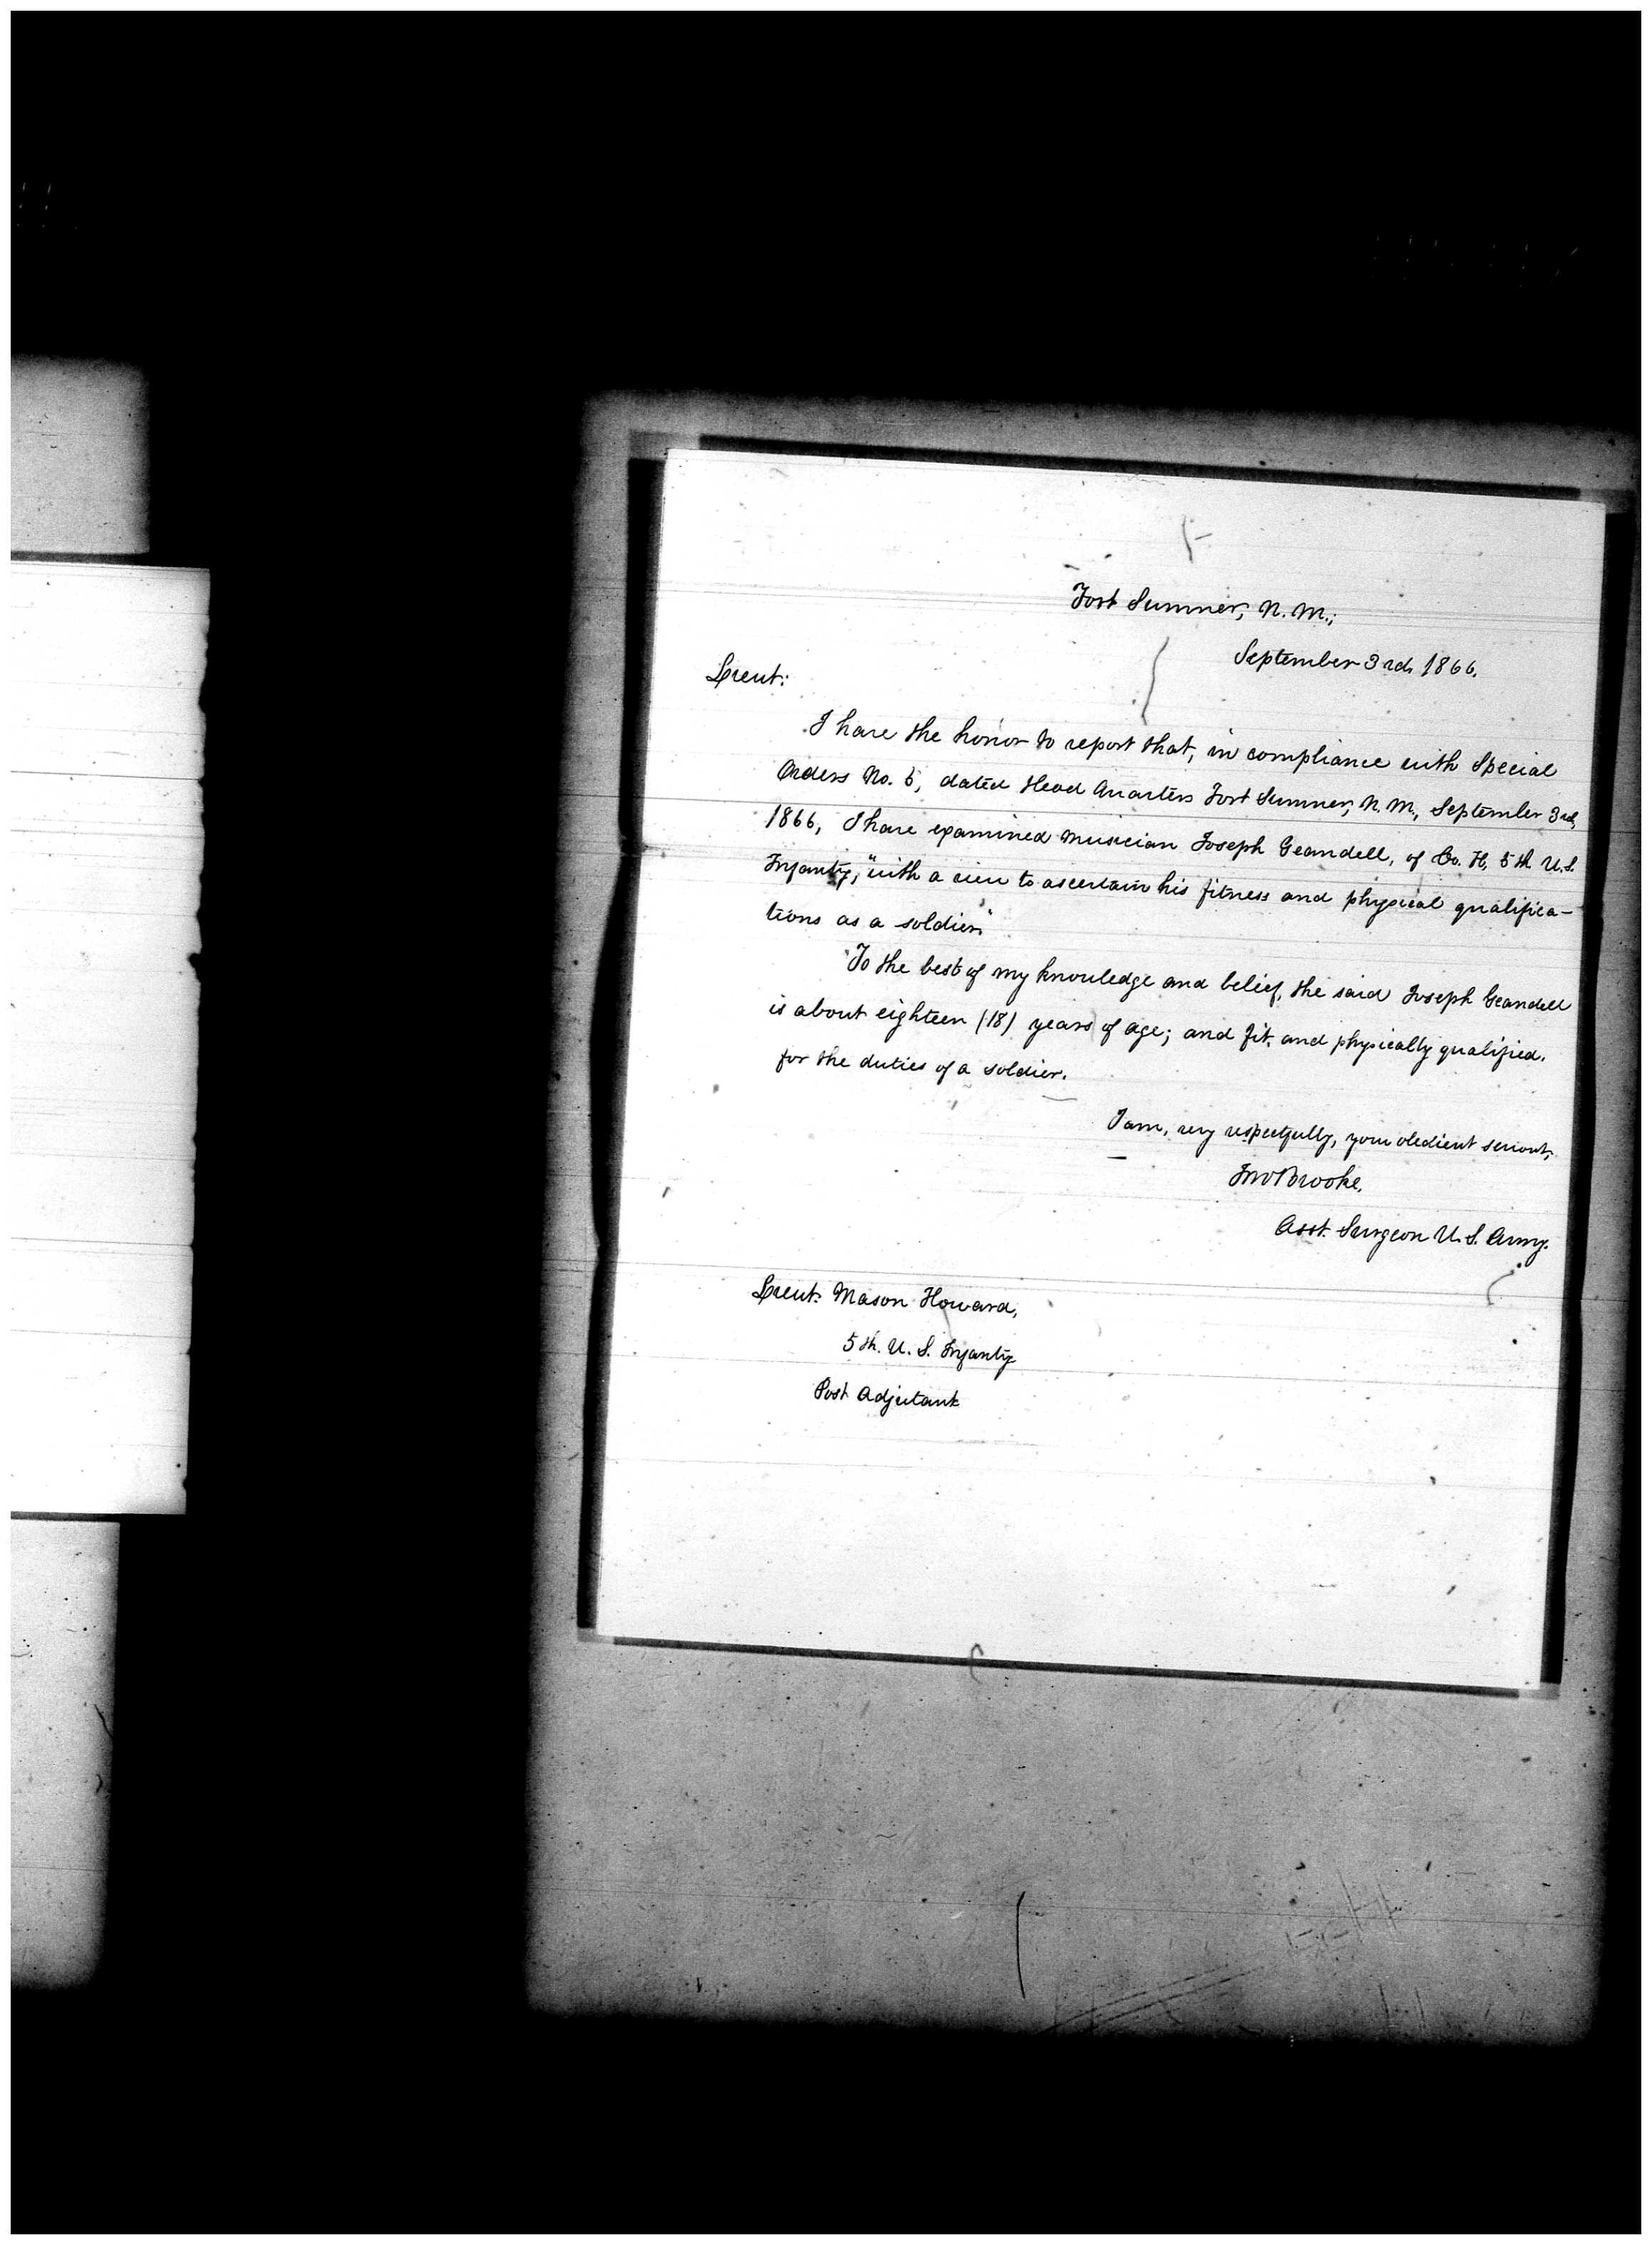 Fort Sumner, N. M.,
September 3rd. 1866.
Lieut:
I have the honor to report that, in compliance with Special
Orders No. 5, dated Head Quarters Fort Sumner, N. M., September 3rd,
1866, I have examined Musician Joseph Geandell, of Co. H, 5th U.S.
Infantry, "with a view to ascertain his fitness and physical qualifica-
tions as a soldier."
To the best of my knowledge and belief, the said Joseph Geandell
is about eighteen (18) years of age; and fit, and physically qualified,
for the duties of a soldier.
I am, very respectfully, your obedient servant,
Jno Brooke,
Asst. Surgeon U. S. Army.
Lieut. Mason Howard,
5th. U. S. Infantry
Post Adjutant